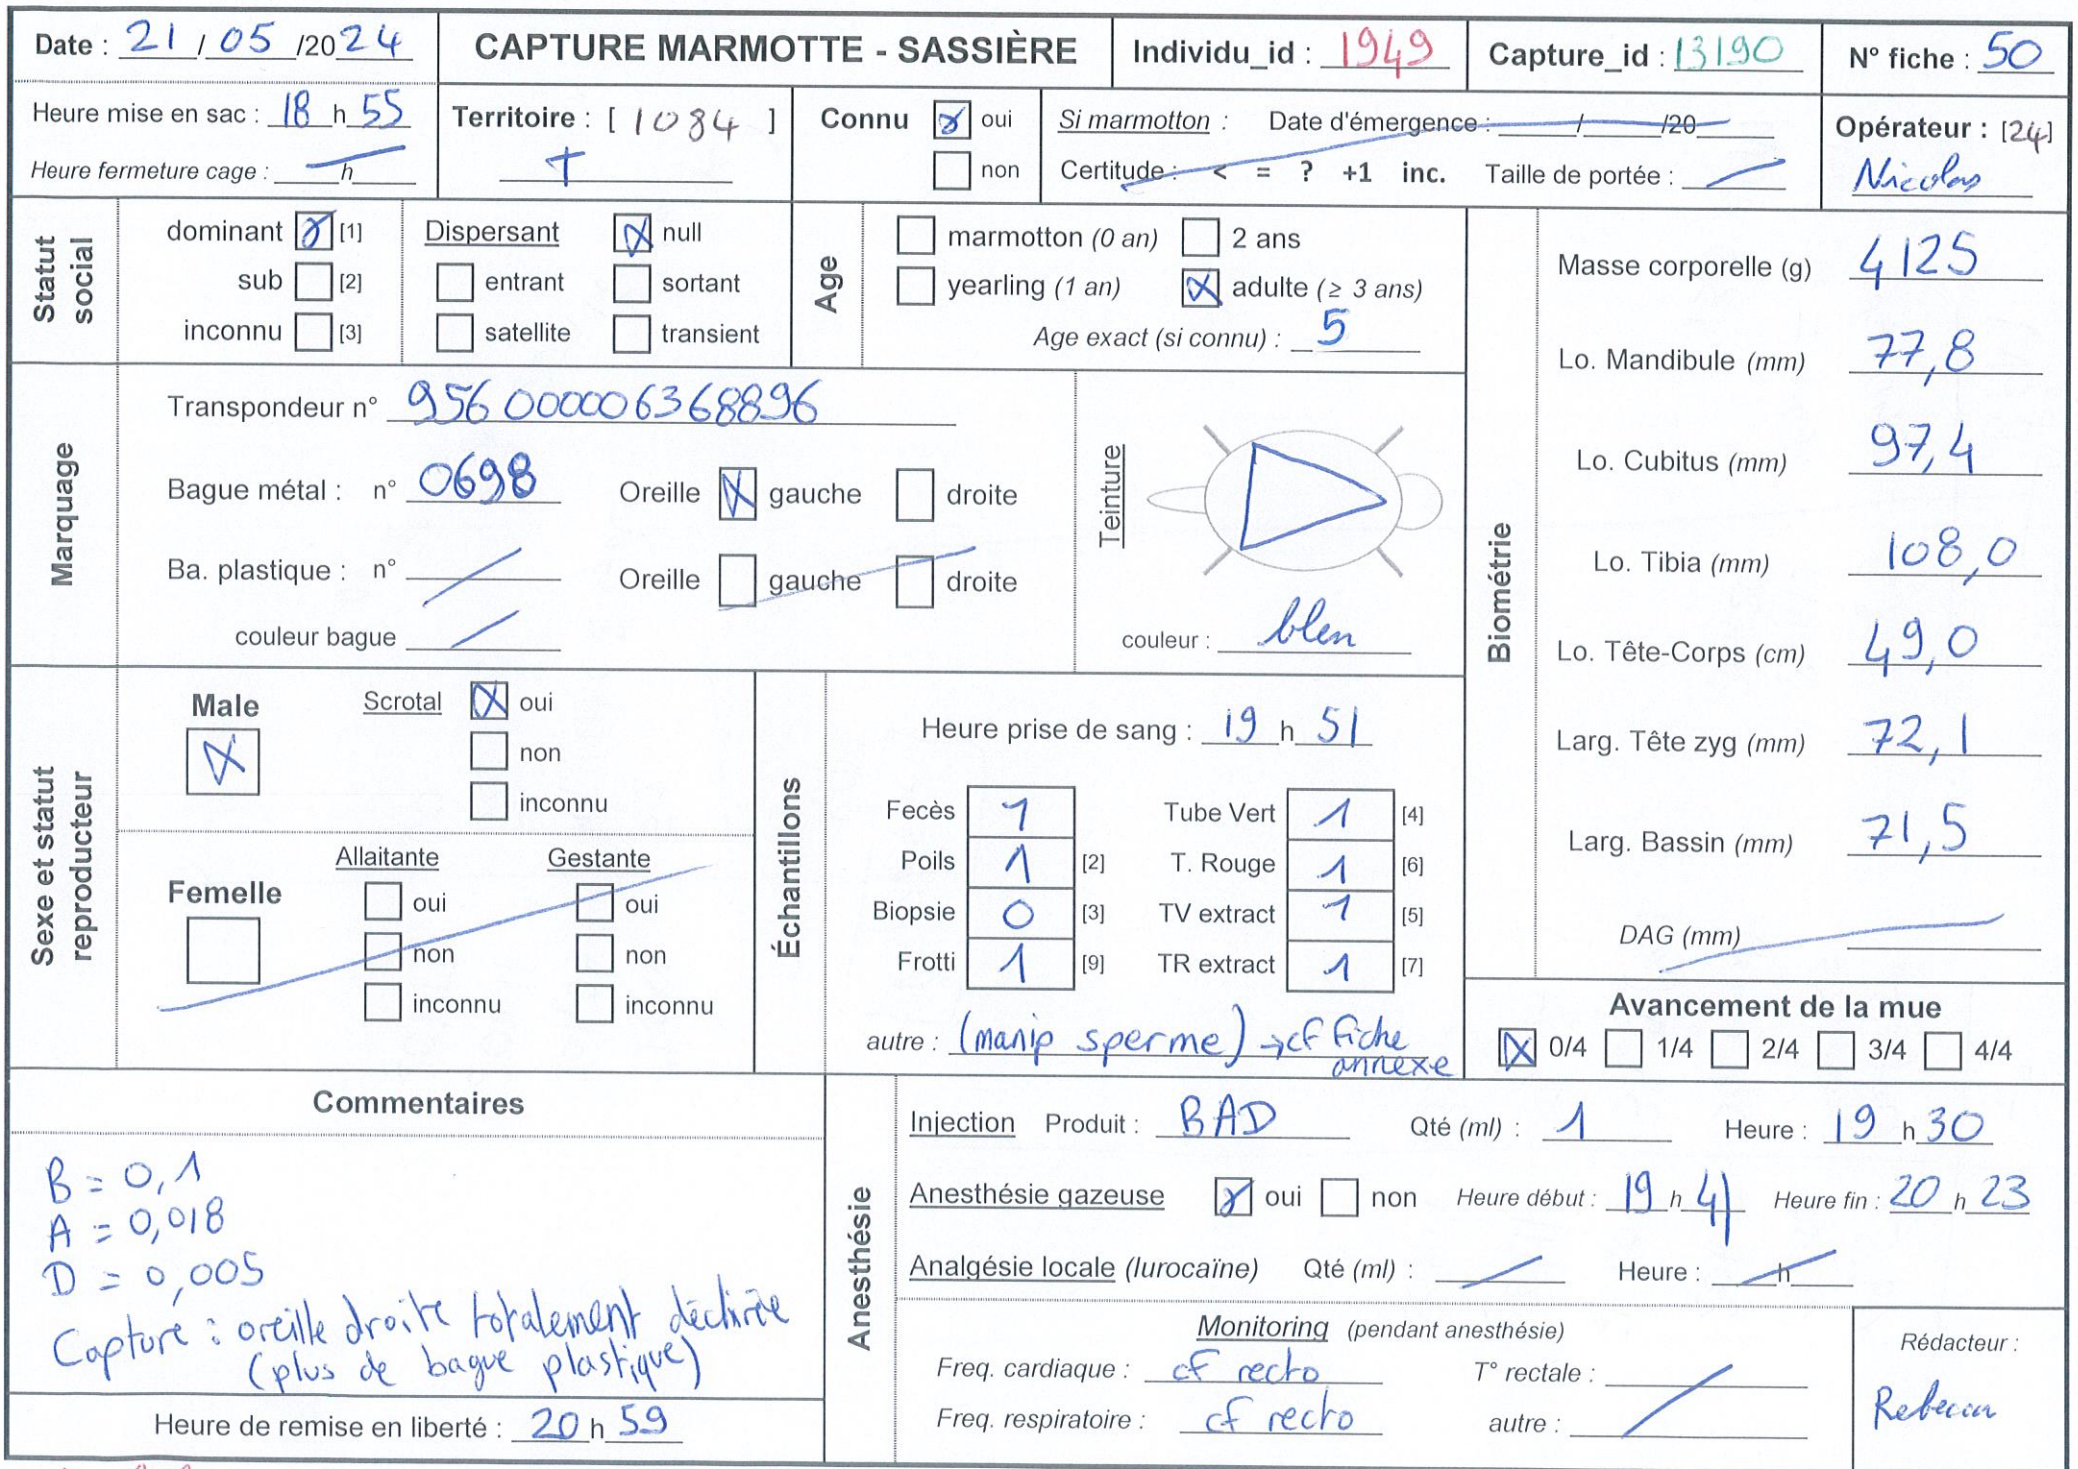 Date : 21 / 05 /2024
CAPTURE MARMOTTE - SASSIÈRE
Individu_id : 1949
Capture_id : 13190
N° fiche : 50
Heure mise en sac : 18 h 55
Heure fermeture cage : h
Territoire : [ 1084 ]
T
Connu oui
non
Si marmotton : Date d'émergence : / /20
Certitude : < = ? +1 inc. Taille de portée :
Opérateur : [24]
Nicolas
Statut social
dominant [1]
sub [2]
inconnu [3]
Dispersant null
entrant sortant
satellite transient
Age
marmotton (0 an) 2 ans
yearling (1 an) adulte (≥ 3 ans)
Age exact (si connu) : 5
Marquage
Transpondeur n° 956000006368896
Bague métal : n° 0698 Oreille gauche droite
Ba. plastique : n° Oreille gauche droite
couleur bague
Teinture
couleur : bleu
Biométrie
Masse corporelle (g) 4125
Lo. Mandibule (mm) 77,8
Lo. Cubitus (mm) 97,4
Lo. Tibia (mm) 108,0
Lo. Tête-Corps (cm) 49,0
Larg. Tête zyg (mm) 72,1
Larg. Bassin (mm) 71,5
DAG (mm)
Sexe et statut reproducteur
Male
Scrotal oui
non
inconnu
Femelle
Allaitante Gestante
oui oui
non non
inconnu inconnu
Échantillons
Heure prise de sang : 19 h 51
Fecès 1 Tube Vert 1 [4]
Poils 1 [2] T. Rouge 1 [6]
Biopsie 0 [3] TV extract 1 [5]
Frotti 1 [9] TR extract 1 [7]
autre : (manip sperme) → cf fiche
annexe
Avancement de la mue
0/4 1/4 2/4 3/4 4/4
Commentaires
B = 0,1
A = 0,018
D = 0,005
Capture : oreille droite totalement déchirée
(plus de bague plastique)
Heure de remise en liberté : 20 h 59
Anesthésie
Injection Produit : BAD Qté (ml) : 1 Heure : 19 h 30
Anesthésie gazeuse oui non Heure début : 19 h 41 Heure fin : 20 h 23
Analgésie locale (lurocaïne) Qté (ml) : Heure : h
Monitoring (pendant anesthésie)
Freq. cardiaque : cf recto T° rectale :
Freq. respiratoire : cf recto autre :
Rédacteur :
Rebecca